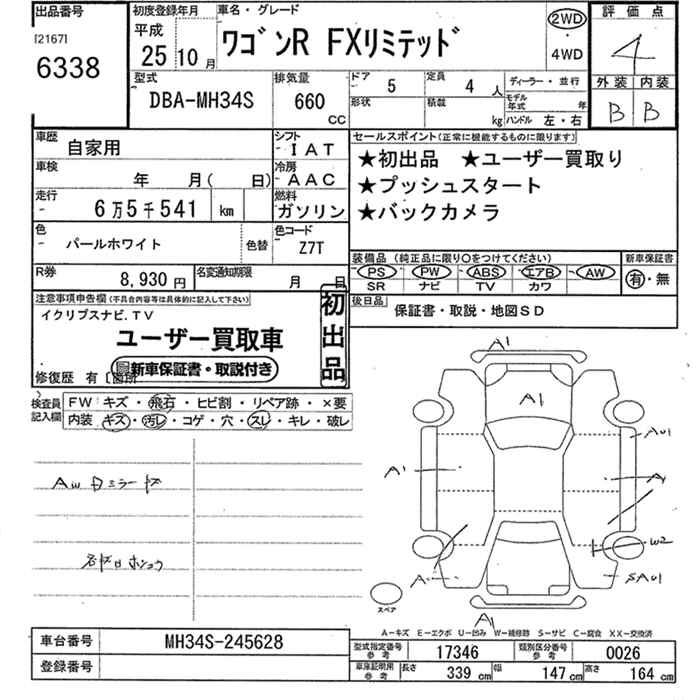 出品番号
[2167]
6338
初度登録年月
平成
25 10 月
車名・グレード
ワゴンR FXリミテッド
2WD
・
4WD
評価点
4
外装 内装
B B
型式
DBA-MH34S
排気量
660
CC
ドア 5
定員 4 人
形状
積載 kg
ディーラー・並行
モデル年式 年
ハンドル 左・右
車歴
自家用
シフト
- IAT
車検
年 月( 日)
冷房
- AAC
走行
- 6万5千541 km
燃料
ガソリン
色
- パールホワイト
色替
色コード
Z7T
R券
8,930 円
名変通知期限
月 日
セールスポイント(正常に機能するものに限ります)
★初出品 ★ユーザー買取り
★プッシュスタート
★バックカメラ
装備品 (純正品に限り○をつけてください)
PS PW ABS エアB AW
SR ナビ TV カワ
新車保証書
有・無
後日品
保証書・取説・地図SD
注意事項申告欄(不具合内容等は具体的に記入して下さい)
イクリプスナビ.TV
ユーザー買取車
新車保証書・取説付き
初出品
修復歴 有 [箇所
検査員記入欄
FW キズ・飛石・ヒビ割・リペア跡・×要
内装 キズ・汚レ・コゲ・穴・スレ・キレ・破レ
AW ミラー
A1
A1
A1
A01
A
W2
A
SA01
A1
スペア
A-キズ E-エクボ U-凹み W-補修跡 S-サビ C-腐食 XX-交換済
車台番号
MH34S-245628
登録番号
型式指定番号参考
17346
類別区分番号参考
0026
車庫証明用参考
長さ 339 cm
幅 147 cm
高さ 164 cm